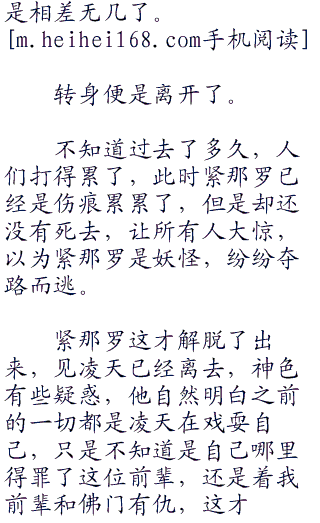 是相差无几了。
[m.heihei168.com手机阅读]
转身便是离开了。
不知道过去了多久，人
们打得累了，此时紧那罗已
经是伤痕累累了，但是却还
没有死去，让所有人大惊，
以为紧那罗是妖怪，纷纷夺
路而逃。
紧那罗这才解脱了出
来，见凌天已经离去，神色
有些疑惑，他自然明白之前
的一切都是凌天在戏耍自
己，只是不知道是自己哪里
得罪了这位前辈，还是着我
前辈和佛门有仇，这才